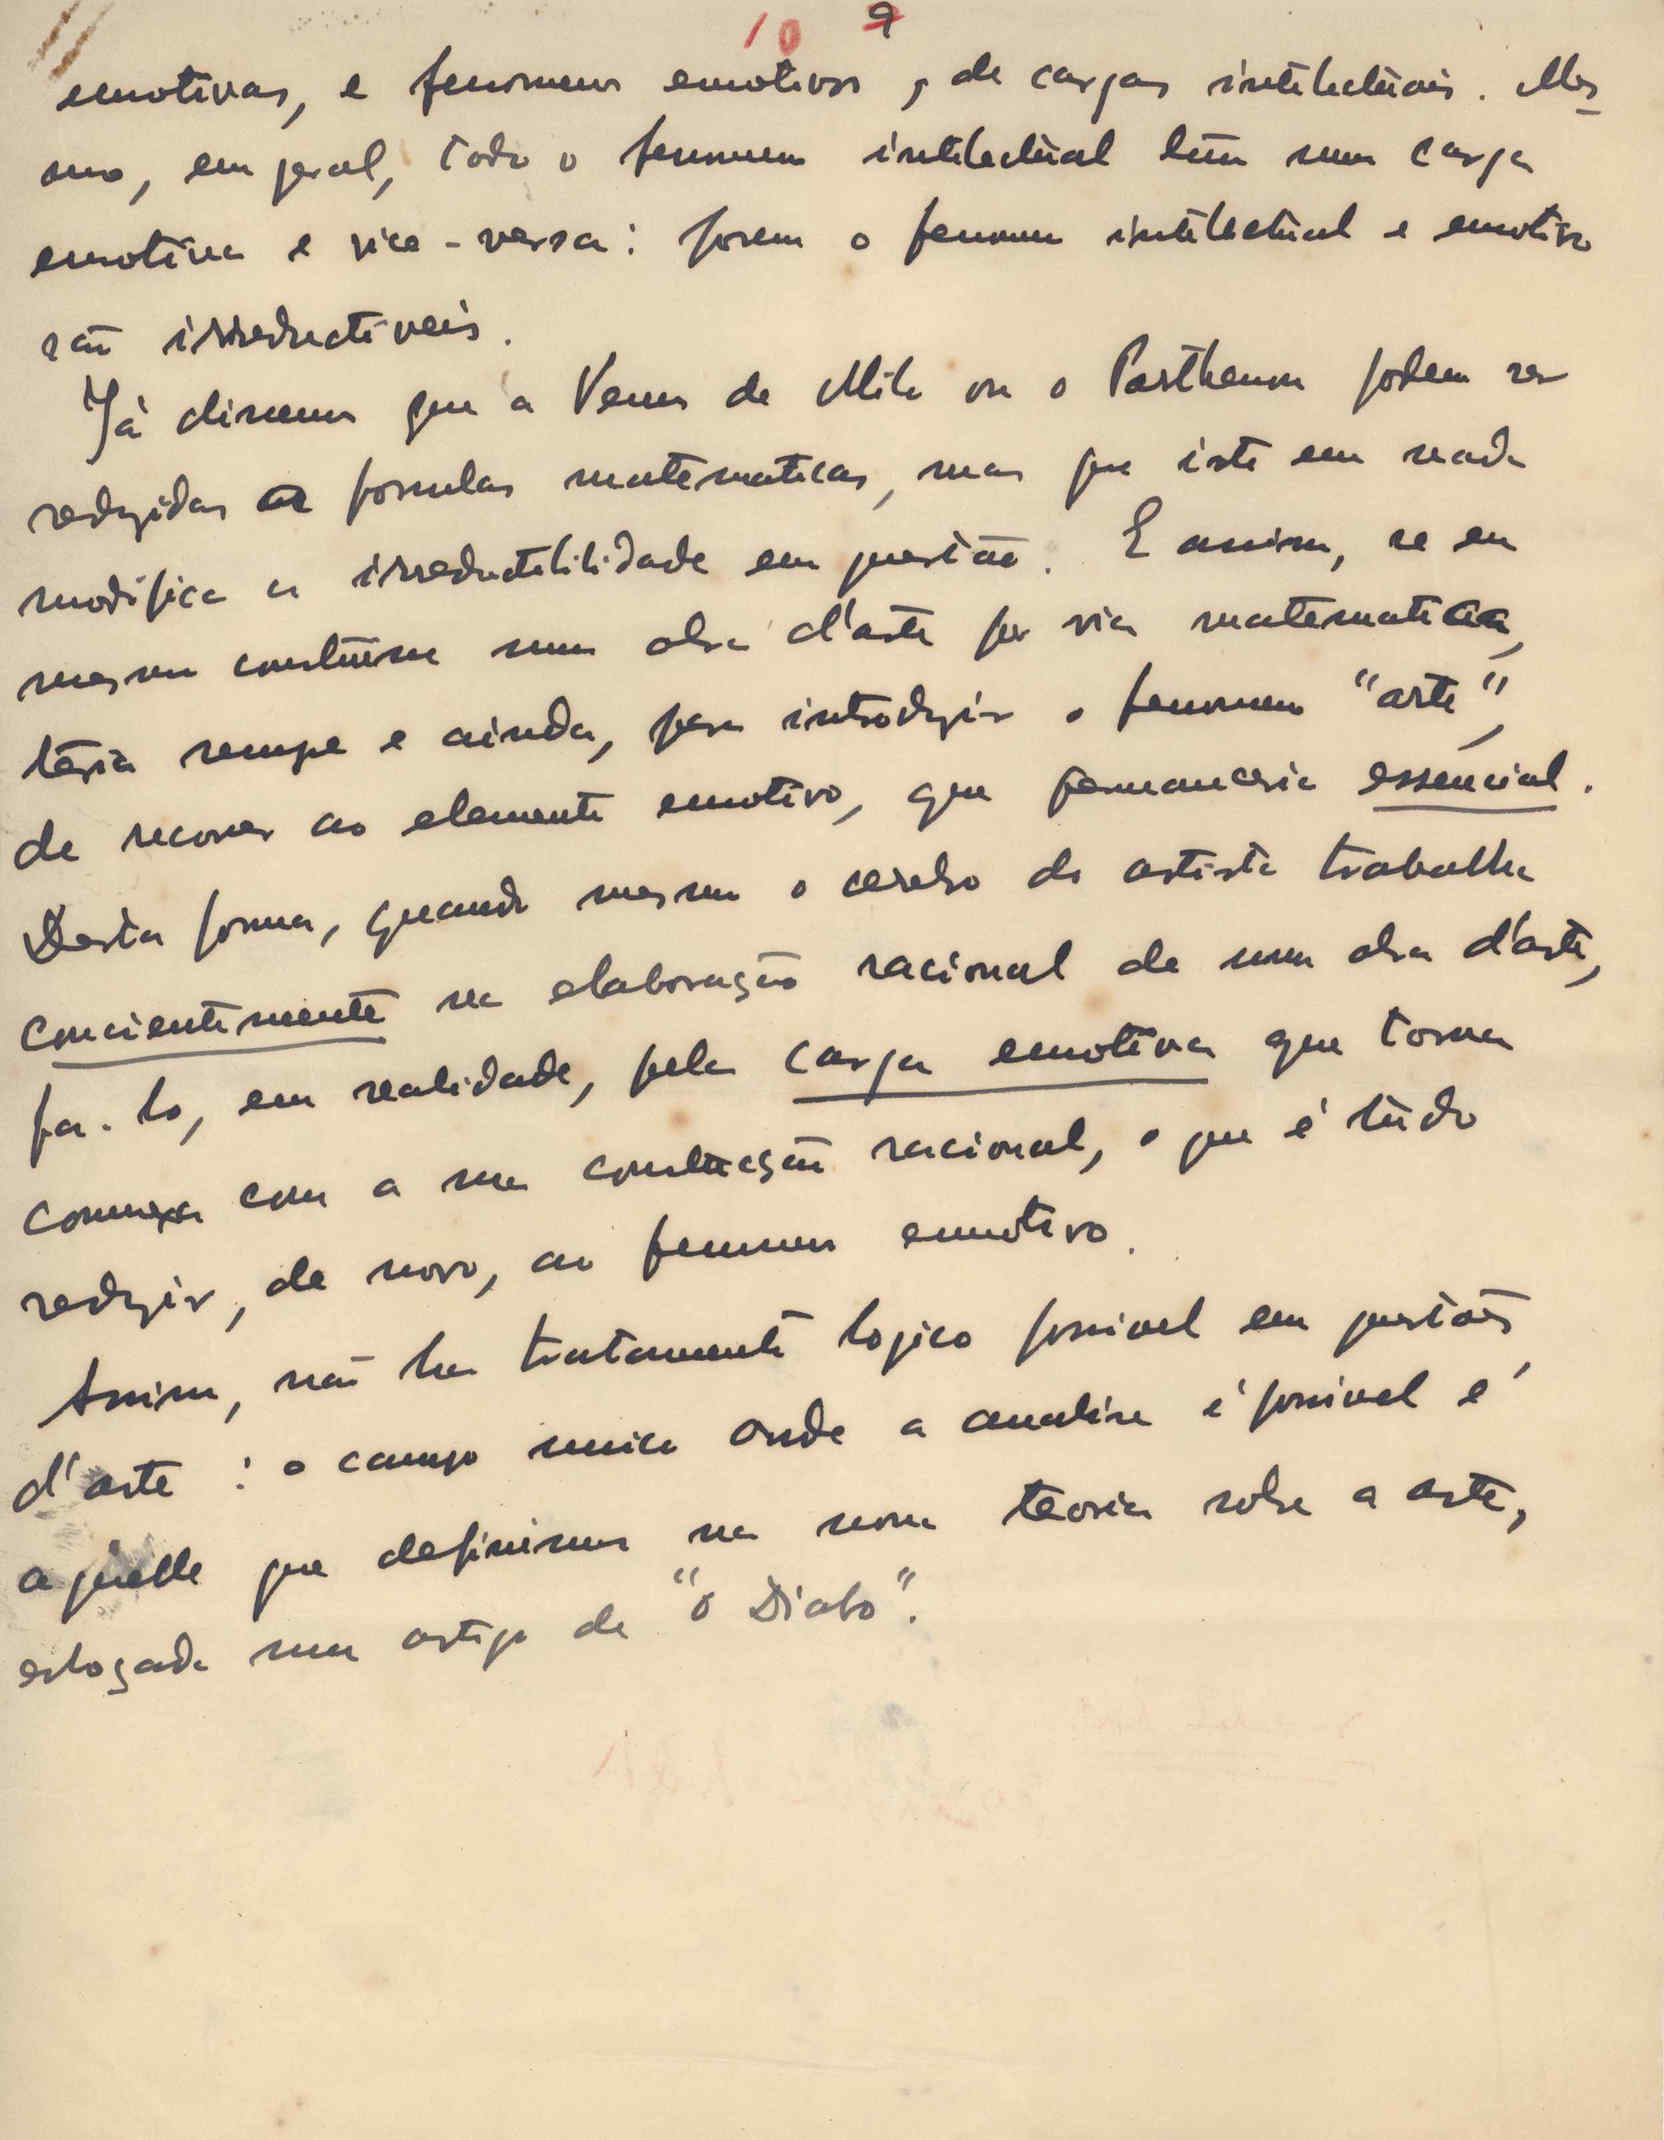 10 9
emotivas, e fenomenos emotivos, de cargas intelectuais. Mes-
mo, em geral, todo o fenomeno intelectual tem uma carga
emotiva e vice-versa: porem o fenomeno intelectual e emotivo
são irreductiveis.
Já dissemos que a Venus de Milo ou o Parthenon podem ser
reduzidas a formulas matematicas, mas que isto em nada
modifica a irreductibilidade em questão. E assim, se eu
mesmo construisse uma obra d'arte por via matematica,
teria sempre e ainda, para introduzir o fenomeno "arte",
de recorrer ao elemento emotivo, que permaneceria essencial.
Desta forma, quando mesmo o cerebro do artista trabalha
concientemente na elaboração racional de uma obra d'arte,
fa-lo, em realidade, pela carga emotiva que torna
connexa com a sua construcção racional, o que é tudo
reduzir, de novo, ao fenomeno emotivo.
Assim, não ha tratamento logico possivel em questões
d'arte: o campo unico onde a analise é possivel é
aquelle que definimos na nossa teoria sobre a arte,
esboçada num artigo de "O Diabo".